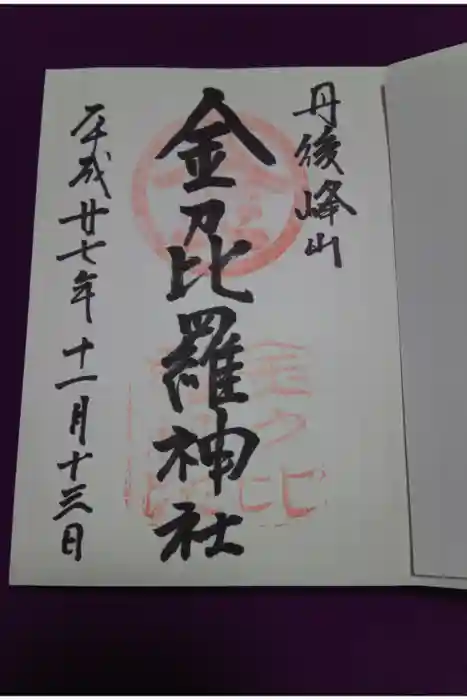 丹後峰山
金毘羅神社
平成廿七年十一月十三日